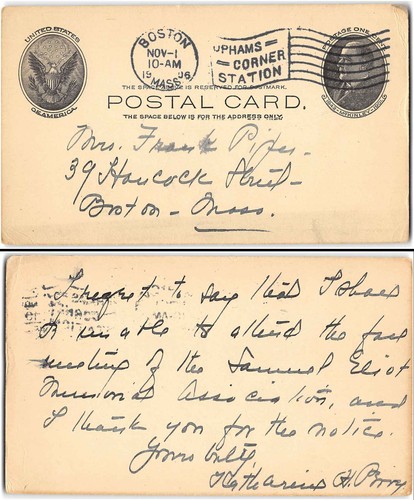 UNITED STATES
OF AMERICA
BOSTON
NOV-1
10-AM
1906
MASS.
UPHAMS
CORNER
STATION
POSTAGE ONE CENT
THE SPACE ABOVE IS RESERVED FOR POSTMARK.
POSTAL CARD.
THE SPACE BELOW IS FOR THE ADDRESS ONLY.
Mrs. Frank
39 Hancock Street
Boston Mass.
I regret to say that I shall
be unable to attend the
meeting of the Samuel Eliot
Memorial Association, and
I thank you for the notice.
Yours truly
Katharine H.